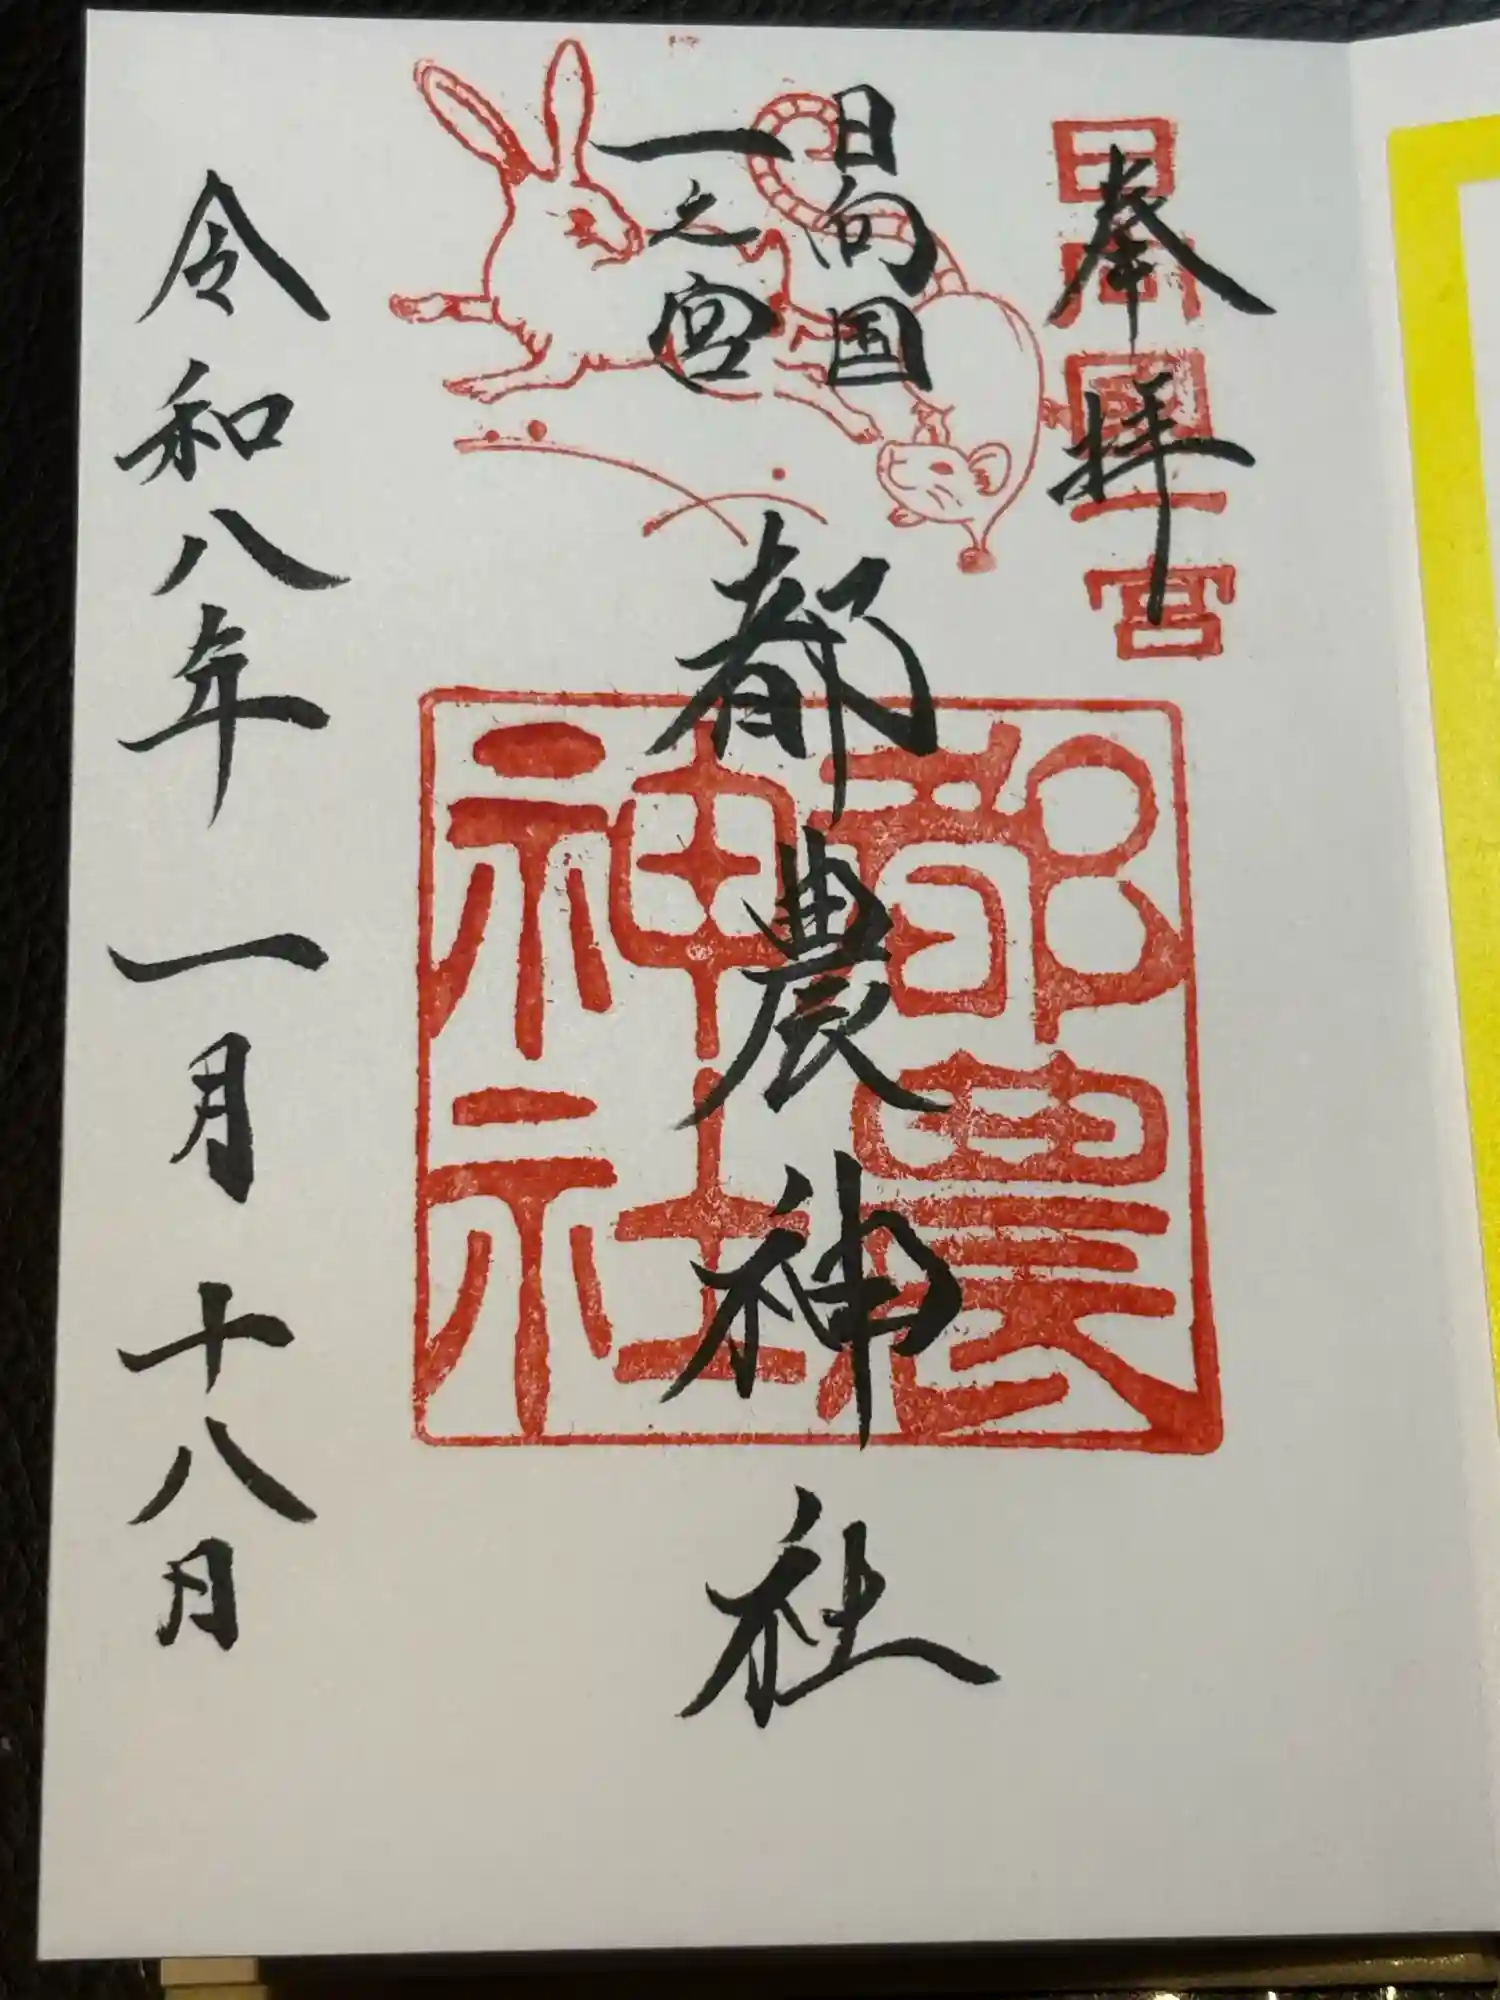 奉拝
日向国一宮
日向国
一之宮
都農神社
都農
神社
令和八年一月十八日